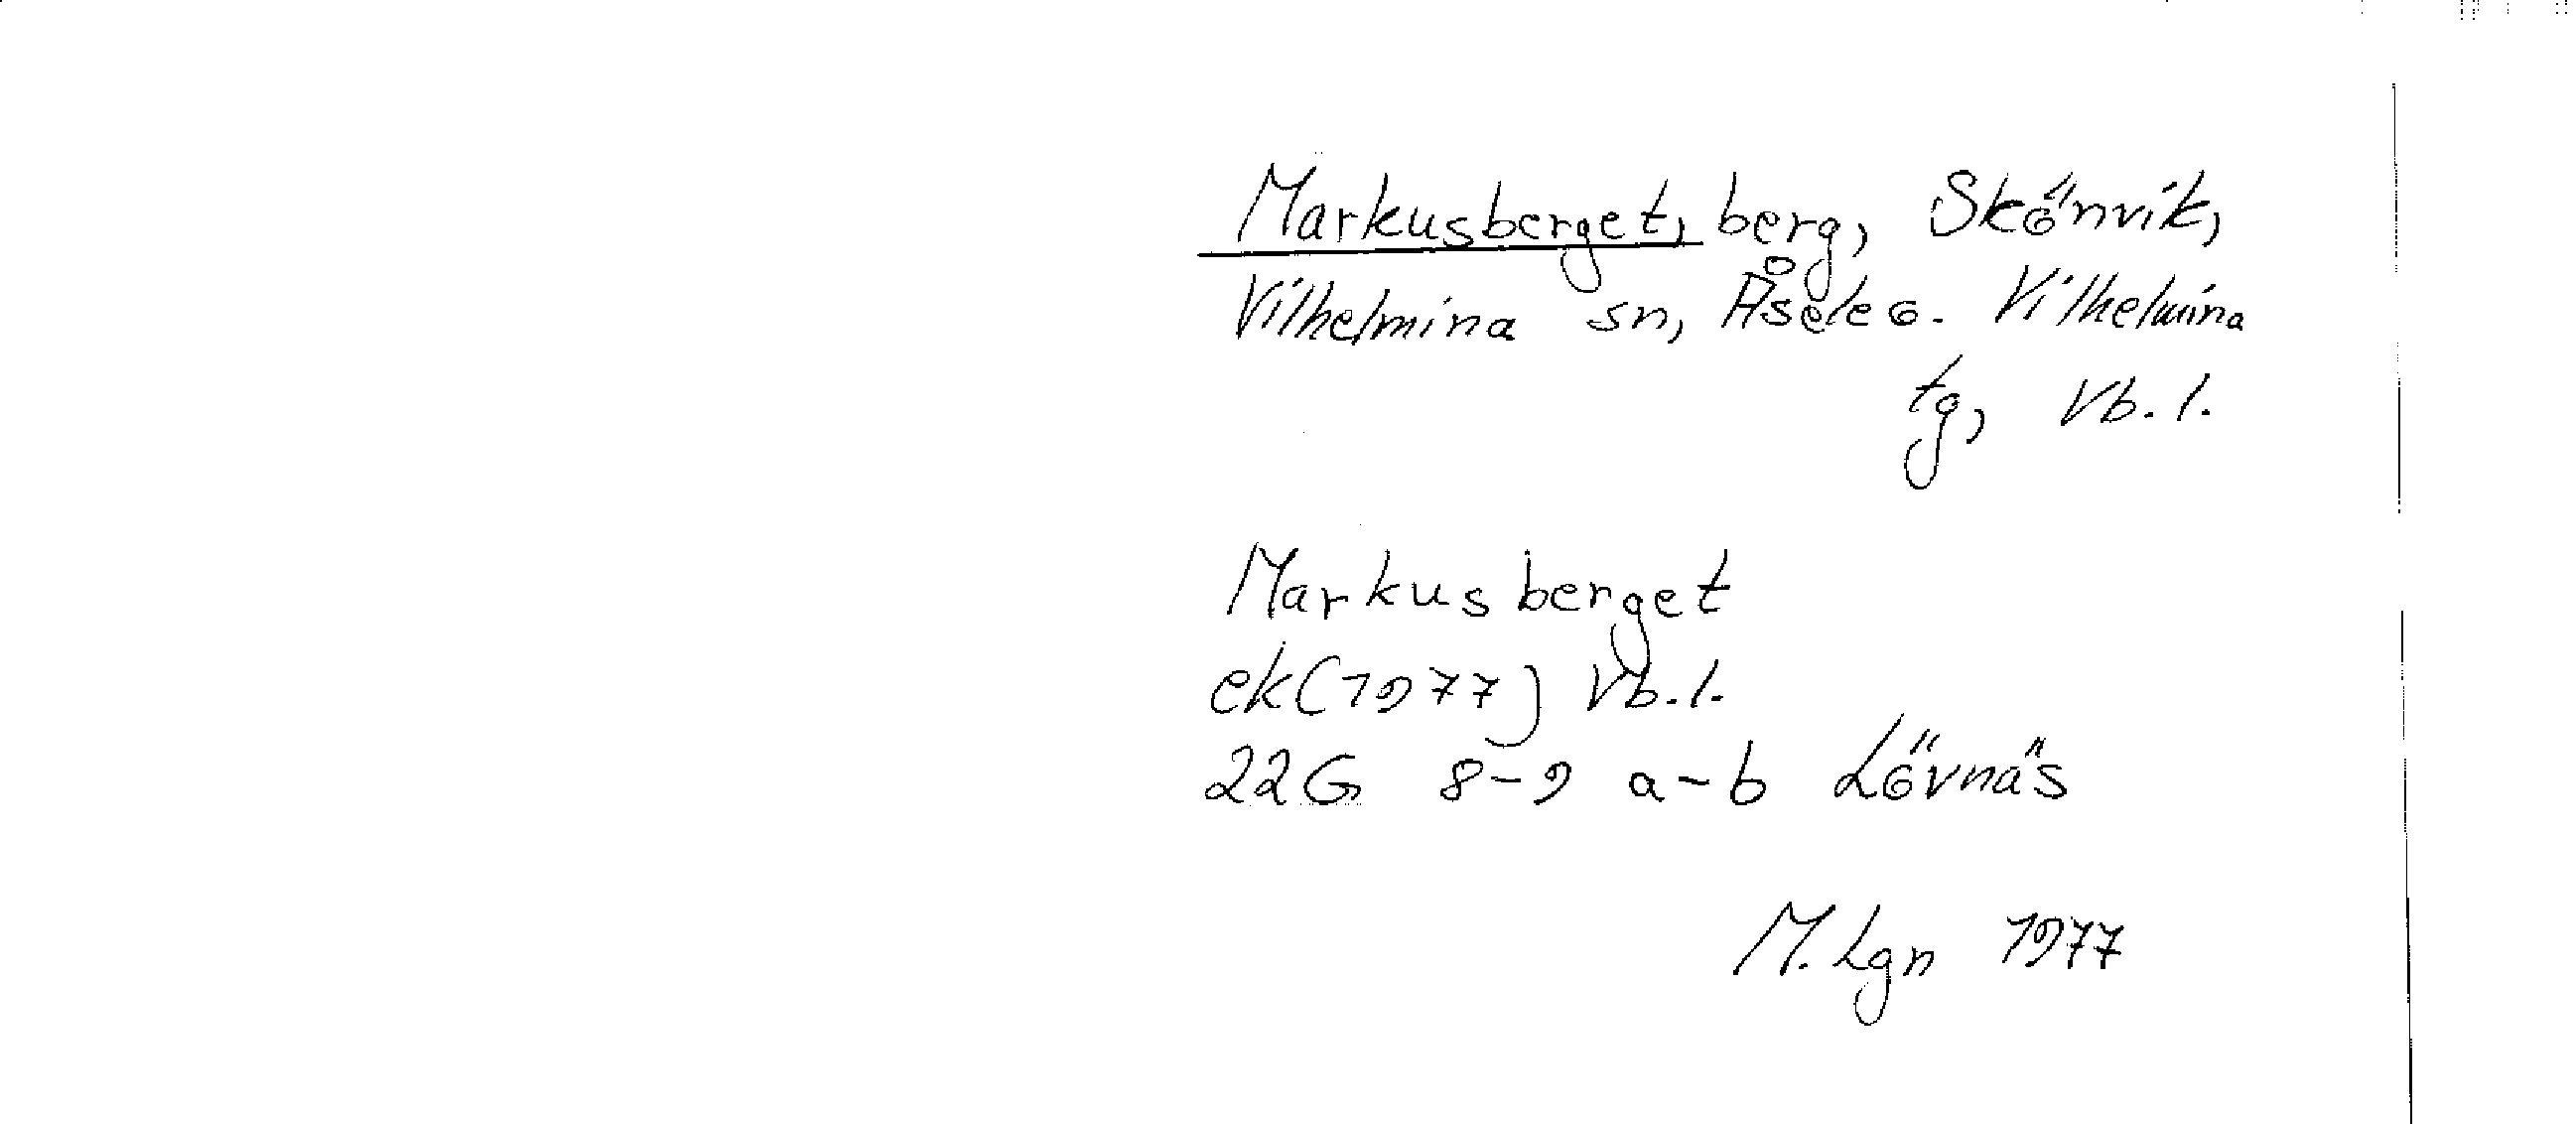 Markusberget, berg, Skönvik,
Vilhelmina sn, Åsele o. Vilhelmina
tg, Vb. l.
Markusberget
ek (1977) Vb. l.
22G 8-9 a-b Lövnäs
M. Lgn 1977